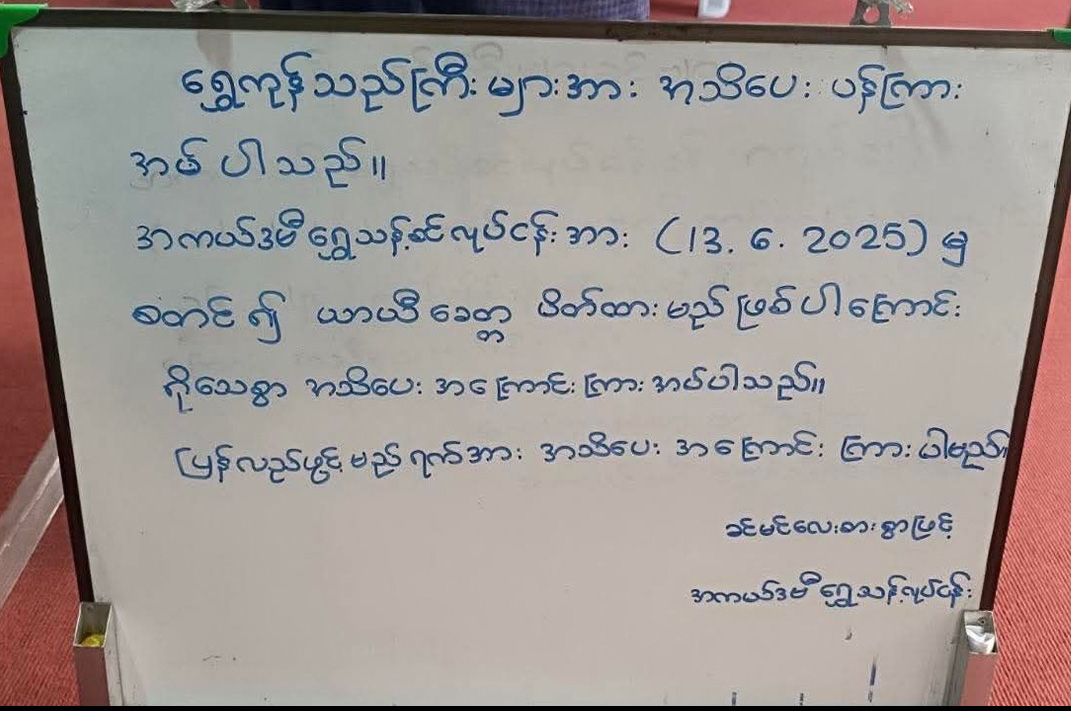 ရွှေကုန်သည်ကြီးများအား အသိပေး ပန်ကြား
အပ်ပါသည်။
အကယ်ဒမီရွှေသန့်စင်လုပ်ငန်းအား (13.6.2025) မှ
စတင်၍ ယာယီခေတ္တ ပိတ်ထားမည်ဖြစ်ပါကြောင်း
ရိုသေစွာ အသိပေး အကြောင်းကြားအပ်ပါသည်။
ပြန်လည်ဖွင့်မည့်ရက်အား အသိပေး အကြောင်းကြားပါမည်။
ခင်မင်လေးစားစွာဖြင့်
အကယ်ဒမီရွှေသန့်လုပ်ငန်း